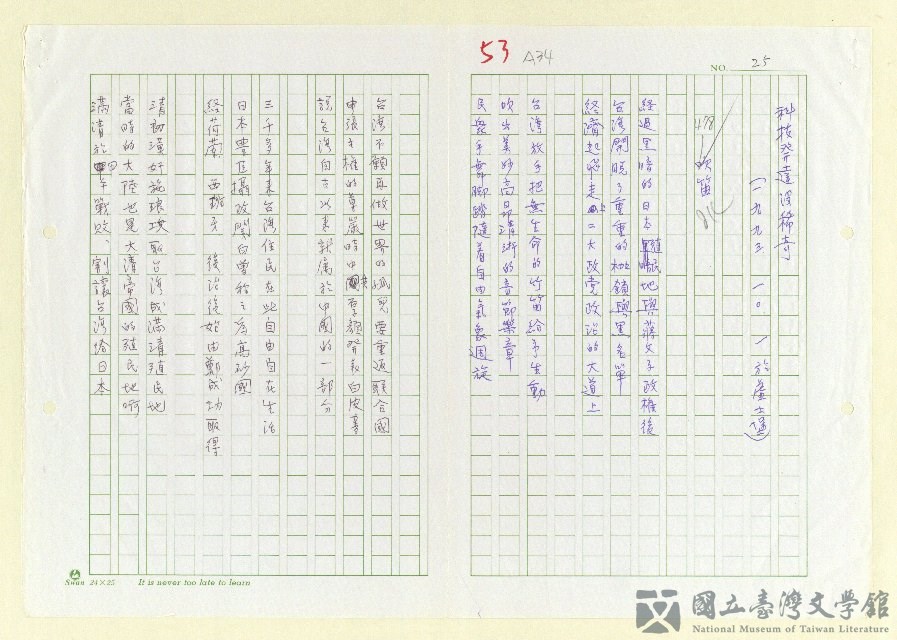 53 A34
NO. 25
科技發達沒稀奇
(一九九三.一〇.一於
吹笛
經過黑暗的日本殖民地與蔣父子政權後
台灣開脫了重重的枷鎖與黑名單
經濟起昭走上二大政党政治的大道上
台灣放手把無生命的竹笛給予生動
吹出美妙高昂清晰的音節樂章
民衆手舞腳踏隨著自由氣象週旋
台灣不願再做世界的孤兒要重返聯合國
申張主權的尊嚴時中共厚顏發表白皮書
說台灣自古以來就屬於中國的一部分
三千多年來台灣住民在此自由自在生活
日本豊臣攝政關白曾稱之為高砂國
經荷蘭、西班牙後沿後始由鄭成功取得
清初漢奸施琅攻取台灣成滿清殖民地
當時的大陸也是大清帝國的殖民地啊
滿清於甲午戰敗、割讓台灣給日本
Swan 24×25 It is never too late to learn
國立臺灣文學館
National Museum of Taiwan Literature